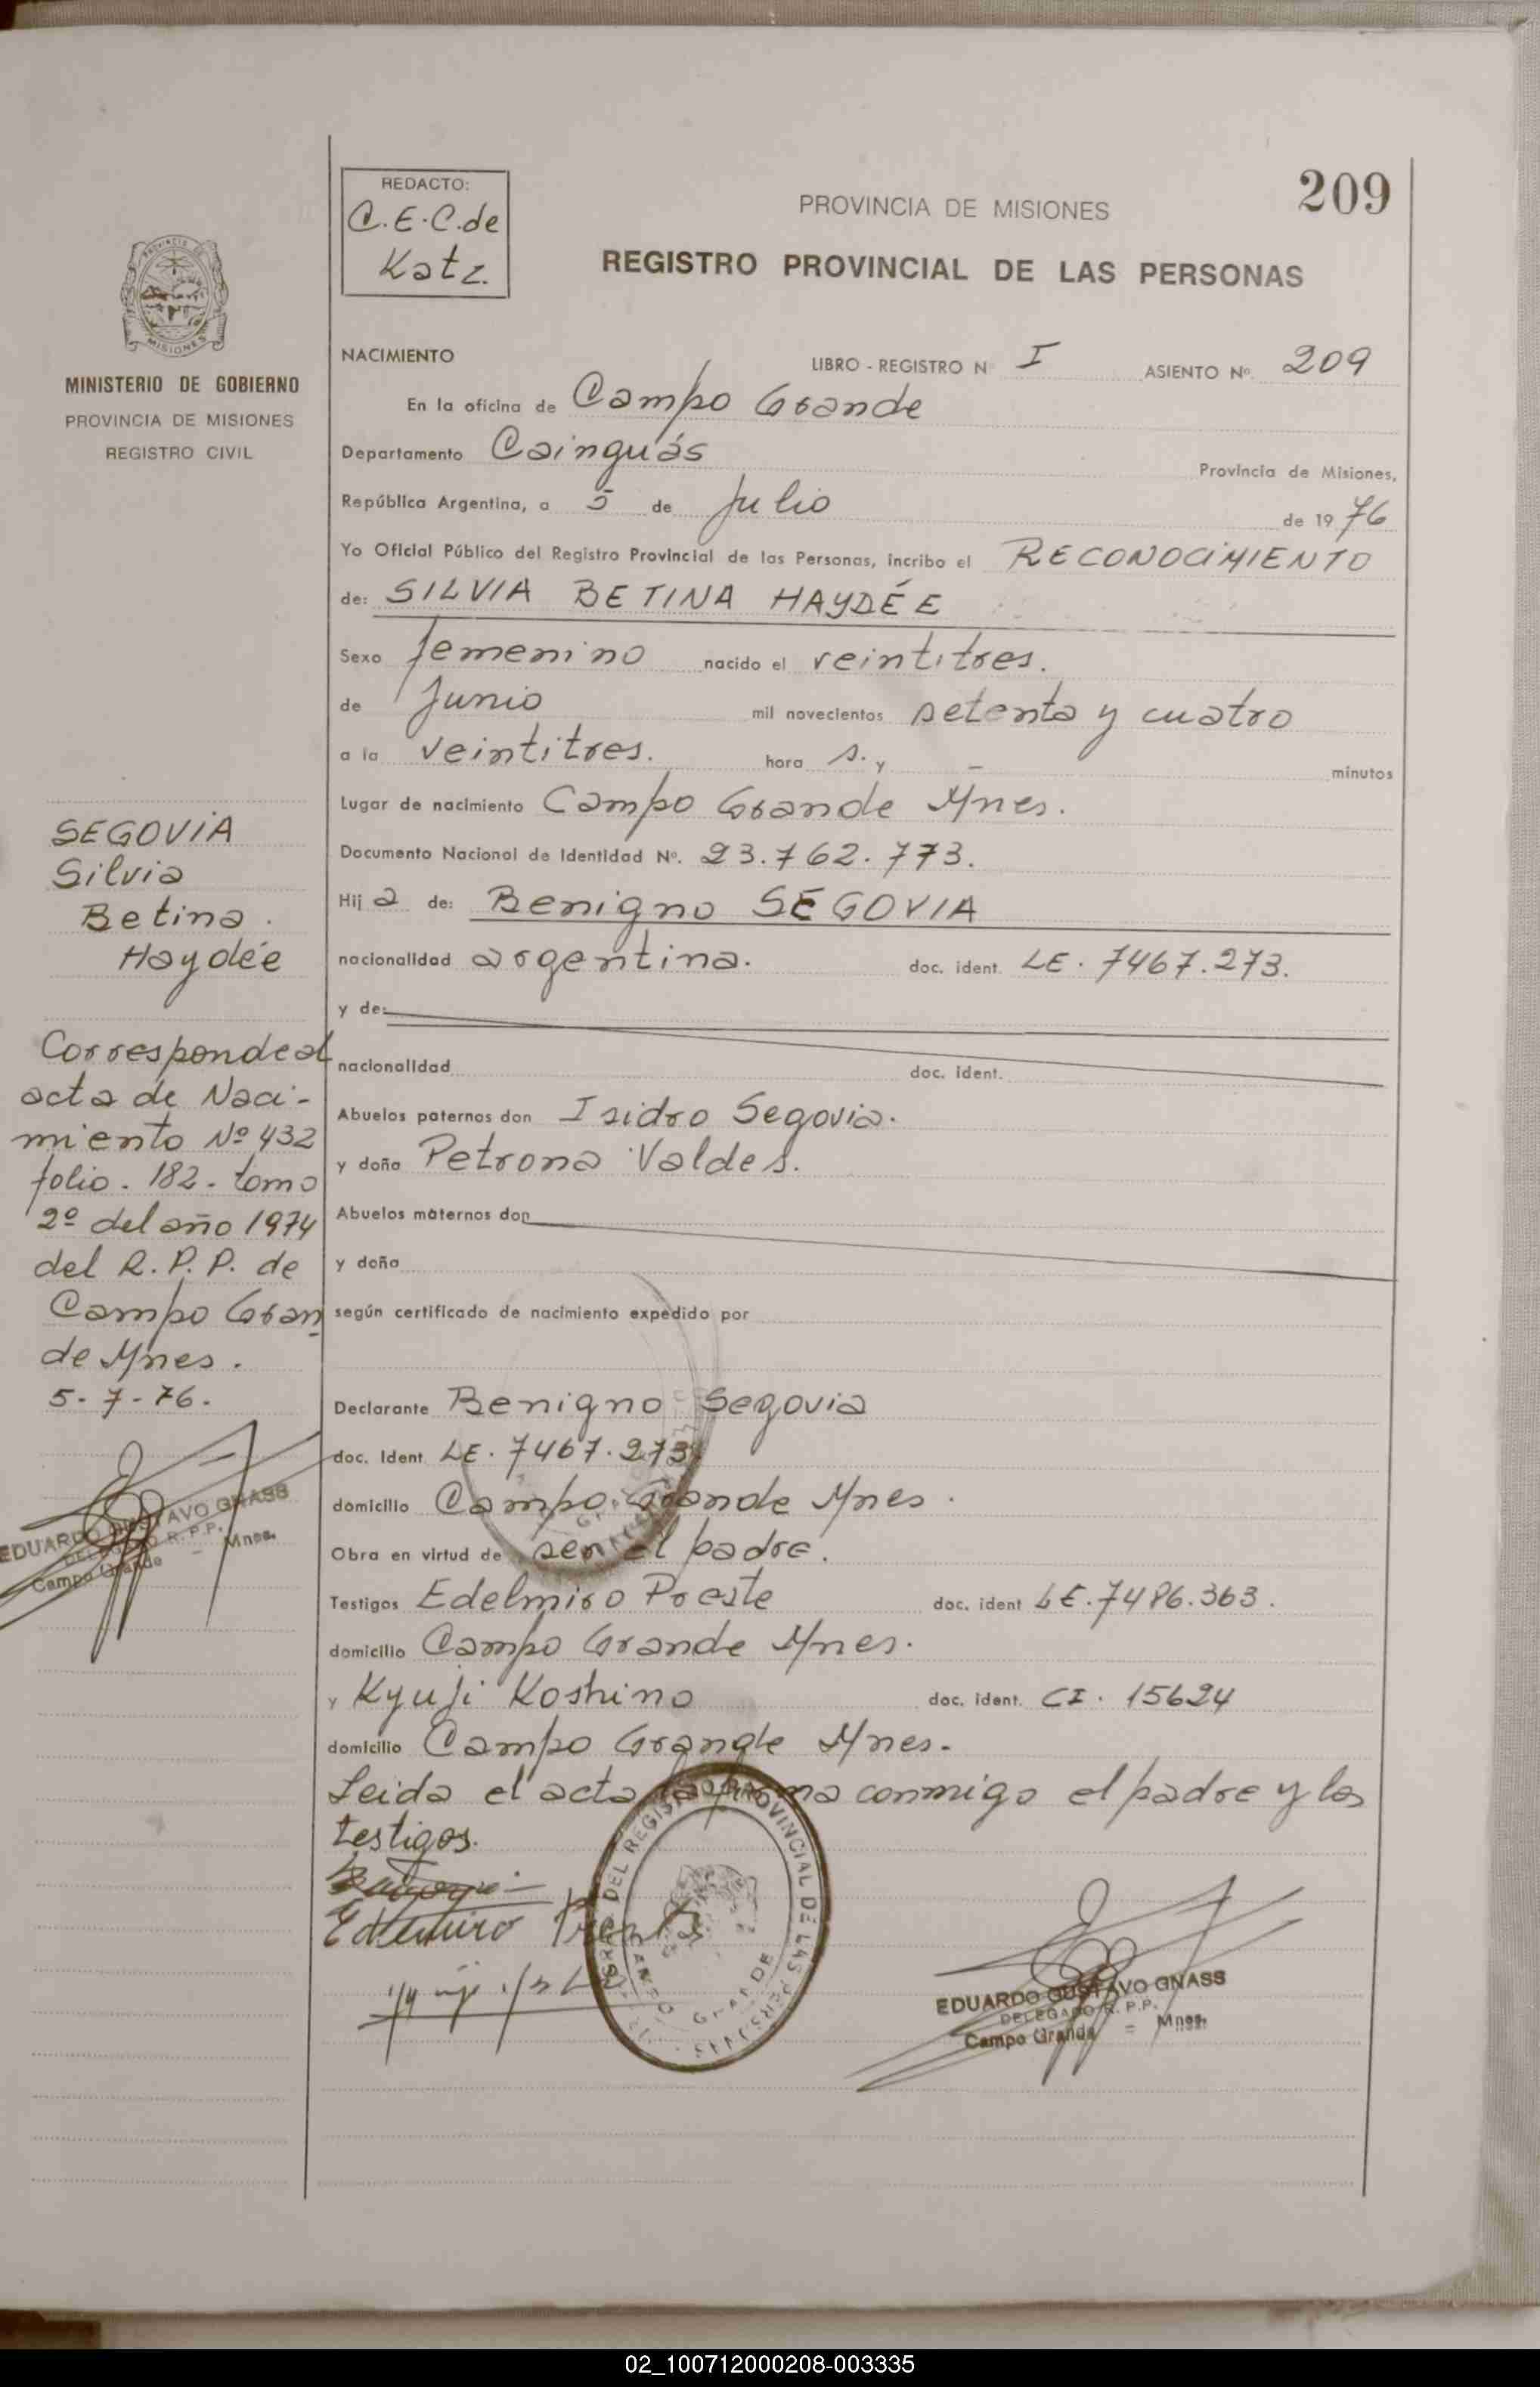 REDACTO:
C.E.C. de
Katz.
209
PROVINCIA DE MISIONES
REGISTRO PROVINCIAL DE LAS PERSONAS
MISIONES
MINISTERIO DE GOBIERNO
PROVINCIA DE MISIONES
REGISTRO CIVIL
NACIMIENTO LIBRO - REGISTRO Nº I ASIENTO Nº. 209
En la oficina de Campo Grande
Departamento Cainguás Provincia de Misiones,
República Argentina, a 5 de Julio de 1976
Yo Oficial Público del Registro Provincial de las Personas, incribo el RECONOCIMIENTO
de: SILVIA BETINA HAYDÉE
Sexo femenino nacido el veintitres.
de Junio mil novecientos setenta y cuatro
a la veintitres. hora s. y — minutos
Lugar de nacimiento Campo Grande Mnes.
Documento Nacional de Identidad Nº. 23.762.773.
Hija de: Benigno SEGOVIA
nacionalidad argentina. doc. ident. LE. 7467.273.
y de:
nacionalidad doc. ident.
Abuelos paternos don Isidro Segovia.
y doña Petrona Valdes.
Abuelos maternos don
y doña
según certificado de nacimiento expedido por
Declarante Benigno Segovia
doc. Ident LE. 7467.273.
domicilio Campo Grande Mnes.
Obra en virtud de ser el padre.
Testigos Edelmiro Preste doc. ident LE. 7486.363.
domicilio Campo Grande Mnes.
y Kyuji Koshino doc. ident. CI. 15624
domicilio Campo Grande Mnes.
Leida el acta la firma conmigo el padre y los
testigos.
SEGOVIA
Silvia
Betina.
Haydée
Corresponde al
acta de Naci-
miento Nº 432
folio. 182. tomo
2º del año 1974
del R.P.P. de
Campo Gran
de Mnes.
5-7-76.
EDUARDO GUSTAVO GNASS
DELEGADO R.P.P.
Campo Grande - Mnes.
Edelmiro
DEL REGISTRO PROVINCIAL DE LAS PERSONAS
CAMPO GRANDE
EDUARDO GUSTAVO GNASS
DELEGADO R.P.P.
Campo Grande = Mnes.
02_100712000208-003335